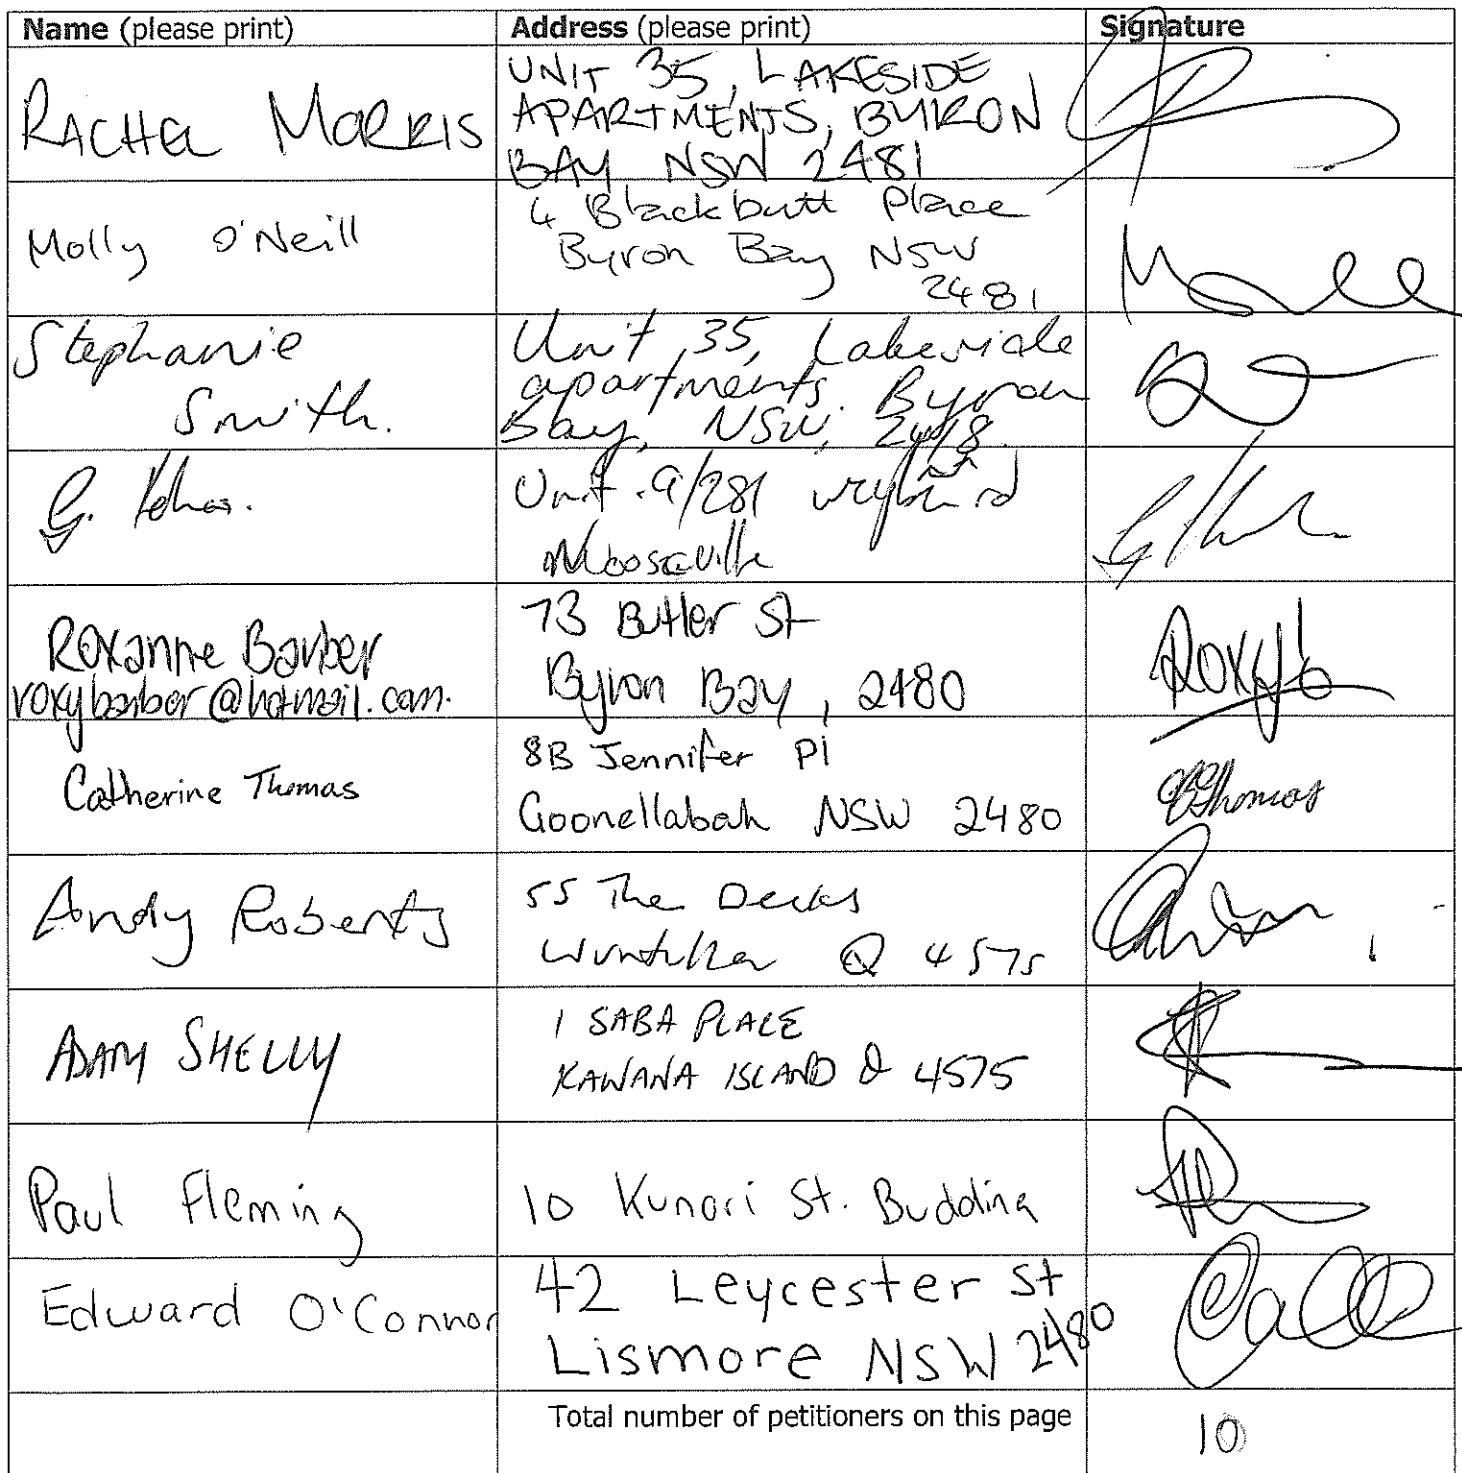 Name (please print) Address (please print) Signature
RACHEL MORRIS
UNIT 35, LAKESIDE
APARTMENTS, BYRON
BAY NSW 2481
Molly O'Neill
4 Blackbutt Place
Byron Bay NSW
2481
Stephanie
Smith.
Unit 35, Lakeside
apartments, Byron
Bay, NSW,
G.
Unit 9/281 rd
Noosaville
Roxanne Barber
roxybarber@hotmail.com.
73 Butler St
Byron Bay, 2480
Roxy b
Catherine Thomas
8B Jennifer Pl
Goonellabah NSW 2480
CThomas
Andy Roberts
55 The Decks
Q 4575
ADAM SHELLY
1 SABA PLACE
KAWANA ISLAND Q 4575
Paul Fleming
10 Kunari St. Buddina
Edward O'Connor
42 Leycester St
Lismore NSW 2480
Total number of petitioners on this page 10